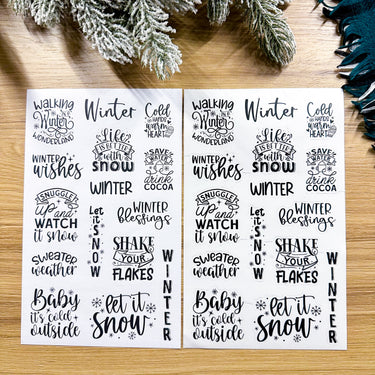 WALKING
IN A
Winter
WONDERLAND
Winter
Cold
HANDS
warm
HEART
Life
IS BETTER
with
SNOW
WINTER
wishes
SAVE
WATER
drink
COCOA
WINTER
SNUGGLE
up and
WATCH
it snow
Let
it
S
N
O
W
WINTER
blessings
SHAKE
YOUR
FLAKES
Sweater
weather
W
I
N
T
E
R
Baby
it's cold
outside
let it
Snow
WALKING
IN A
Winter
WONDERLAND
Winter
Cold
HANDS
warm
HEART
Life
IS BETTER
with
SNOW
WINTER
wishes
SAVE
WATER
drink
COCOA
WINTER
SNUGGLE
up and
WATCH
it snow
Let
it
S
N
O
W
WINTER
blessings
SHAKE
YOUR
FLAKES
Sweater
weather
W
I
N
T
E
R
Baby
it's cold
outside
let it
Snow